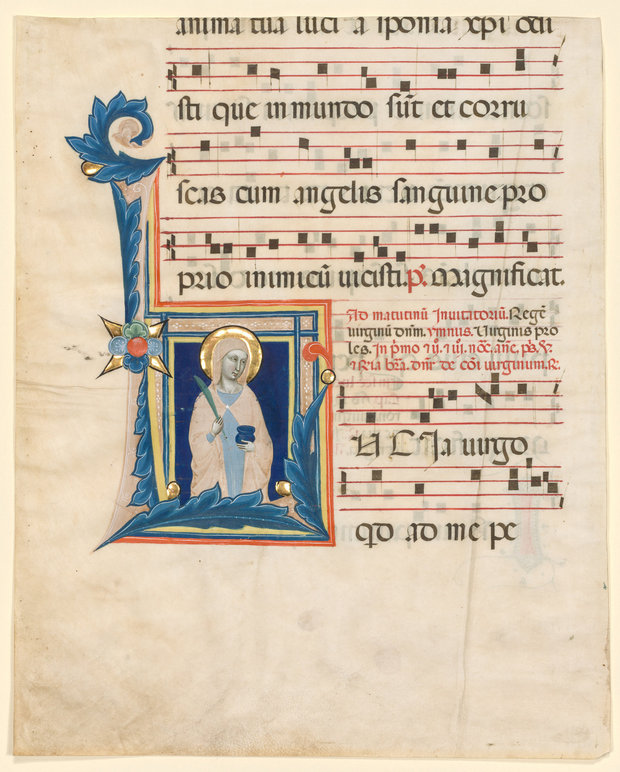 anima tua luci a sponsa xpi odi
sti que in mundo sūt et corru
scas cum angelis sanguine pro
prio inimicū uicisti. p̄s. Magnificat.
Ad matutinū Inuitatoriū. Regē
uirginū dn̄m. ymnus. Uirginis pro
les. In pͥmo ⁊ ij. ⁊ iij. noc̄. an̄e. p̄s. ℣.
de cōi uirginum. ℟.
LUCIa uirgo
qd̄ ad me pe